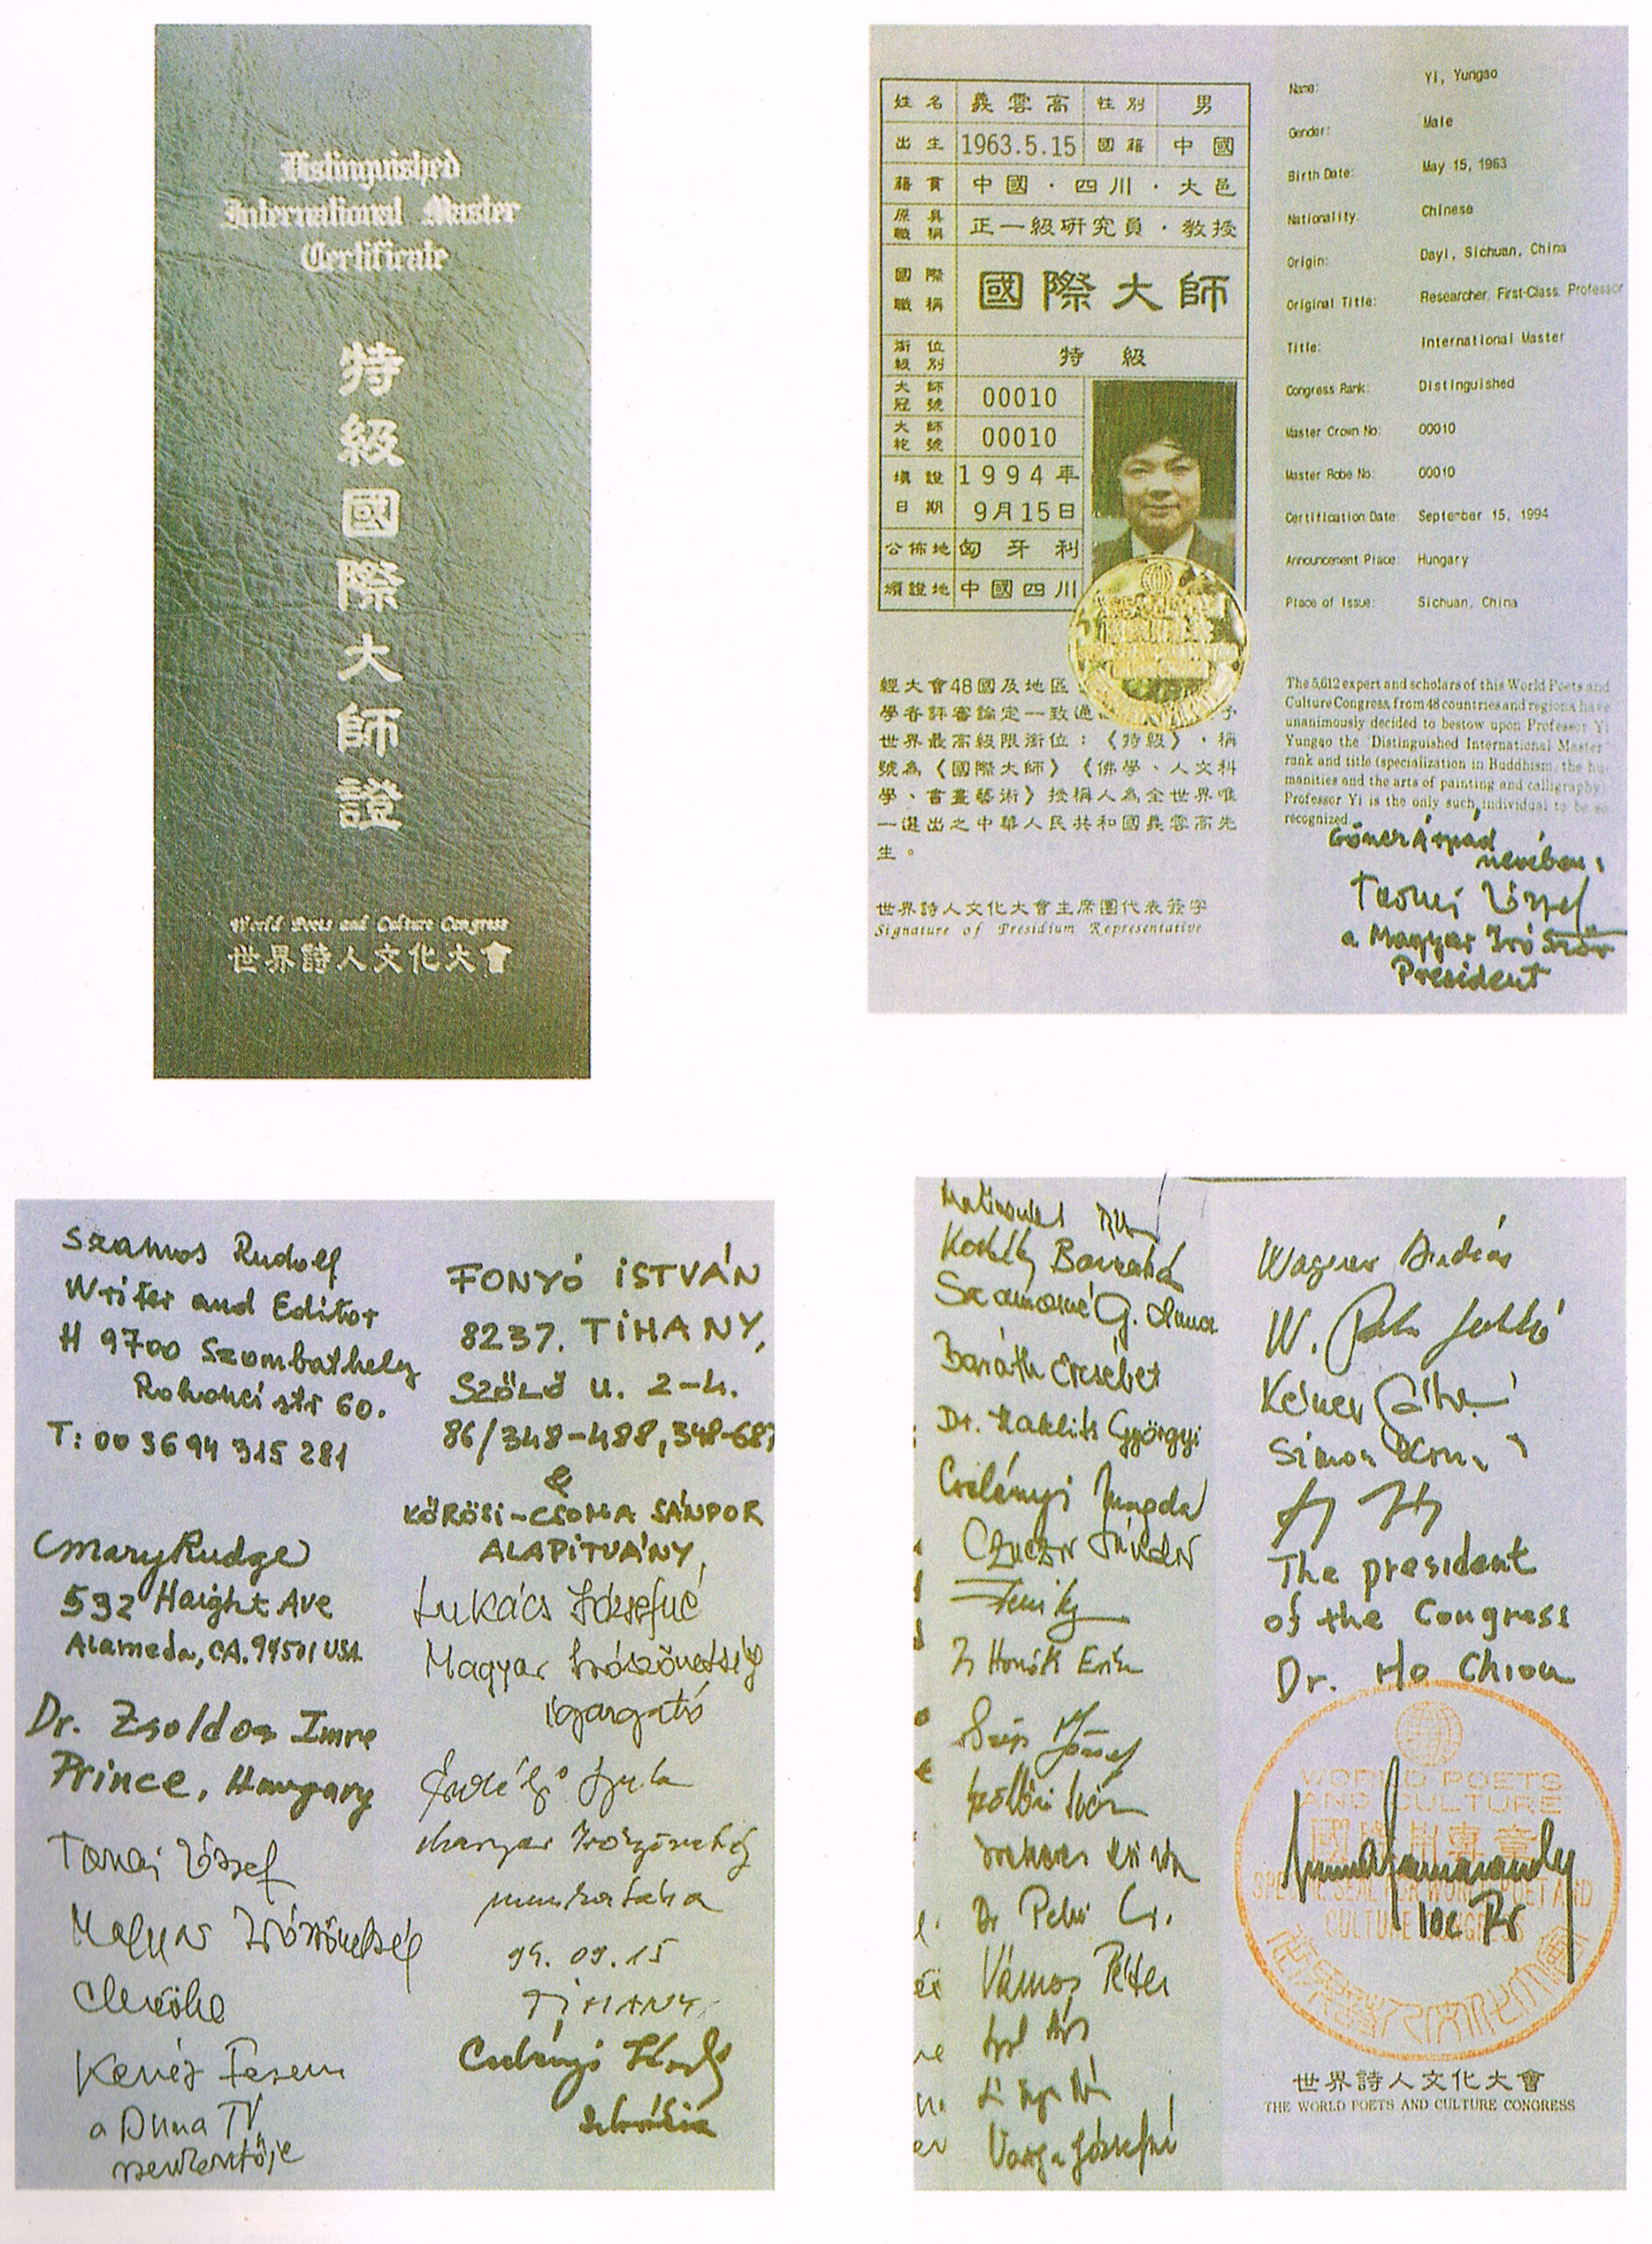 Distinguished
International Master
Certificate
特級國際大師證
World Poets and Culture Congress
世界詩人文化大會
姓名 義雲高 性別 男
出生 1963.5.15 國籍 中國
籍貫 中國・四川・大邑
原具職稱 正一級研究員・教授
國際職稱 國際大師
銜位級別 特級
大師冠號 00010
大師袍號 00010
填證日期 1994年9月15日
公佈地 匈牙利
頒證地 中國四川
經大會48國及地區
學者評審論定一致通
世界最高級限銜位：《特級》，稱
號為《國際大師》《佛學、人文科
學、書畫藝術》授稱人為全世界唯
一選出之中華人民共和國義雲高先
生。
世界詩人文化大會主席團代表簽字
Signature of Presidium Representative
Name: Yi, Yungao
Gender: Male
Birth Date: May 15, 1963
Nationality: Chinese
Origin: Dayi, Sichuan, China
Original Title: Researcher, First-Class, Professor
Title: International Master
Congress Rank: Distinguished
Master Crown No: 00010
Master Robe No: 00010
Certification Date: September 15, 1994
Announcement Place: Hungary
Place of Issue: Sichuan, China
The 5,612 expert and scholars of this World Poets and
Culture Congress, from 48 countries and regions have
unanimously decided to bestow upon Professor Yi
Yungao the "Distinguished International Master"
rank and title (specialization in Buddhism, the hu-
manities and the arts of painting and calligraphy)
Professor Yi is the only such individual to be so
recognized.
Árpád
nevében:
József
a Magyar
President
Szamos Rudolf
Writer and Editor
H 9700 Szombathely
Rohonci str 60.
T: 00 36 94 315 281
Mary Rudge
532 Haight Ave
Alameda, CA. 94501 USA
Dr. Zsoldos Imre
Prince, Hungary
Tornai József
Magyar Írószövetség
elnöke
a Duna TV
FONYÓ ISTVÁN
8237. TIHANY,
SZŐLŐ U. 2-4.
86/348-488, 348-68
&
KŐRÖSI-CSOMA SÁNDOR
ALAPITVÁNY,
Lukács Józsefné
Magyar Írószövetség
igazgató
Erdélyi
munkatársa
94. 09. 15
TIHANY
Borbála
G. Anna
Baráth Erzsébet
Dr. György
Magda
Czuczor Sándor
József
Dr
Vámos Péter
Varga Józsefné
Wagner András
W.
Simon
The president
of the Congress
Dr. Ho Chiou
WORLD POETS
AND CULTURE
國際用專章
SPECIAL SEAL FOR WORLD POET AND
CULTURE CONGRESS
世界詩人文化大會
世界詩人文化大會
THE WORLD POETS AND CULTURE CONGRESS